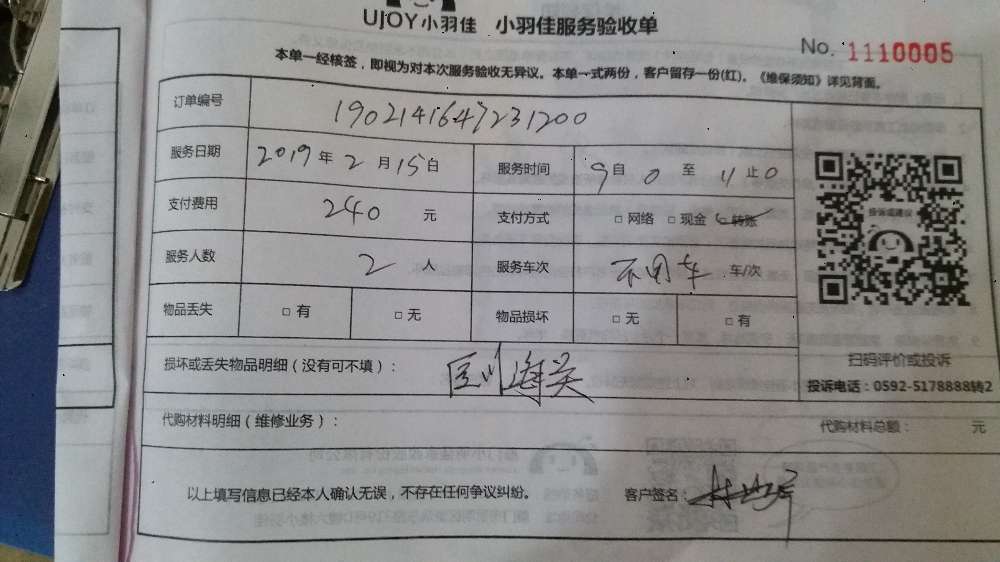 UJOY小羽佳 小羽佳服务验收单
No. 1110005
本单一经核签，即视为对本次服务验收无异议。本单一式两份，客户留存一份(红)。《维保须知》详见背面。
订单编号 1902141647231200
服务日期 2019年2月15日 服务时间 9自0至11止0
支付费用 240元 支付方式 □网络 □现金 □转账
服务人数 2人 服务车次 不用车 车/次
物品丢失 □有 □无 物品损坏 □无 □有
投诉或建议
扫码评价或投诉
投诉电话：0592-5178888转2
损坏或丢失物品明细（没有可不填）：
代购材料明细（维修业务）： 代购材料总额： 元
以上填写信息已经本人确认无误，不存在任何争议纠纷。 客户签名：